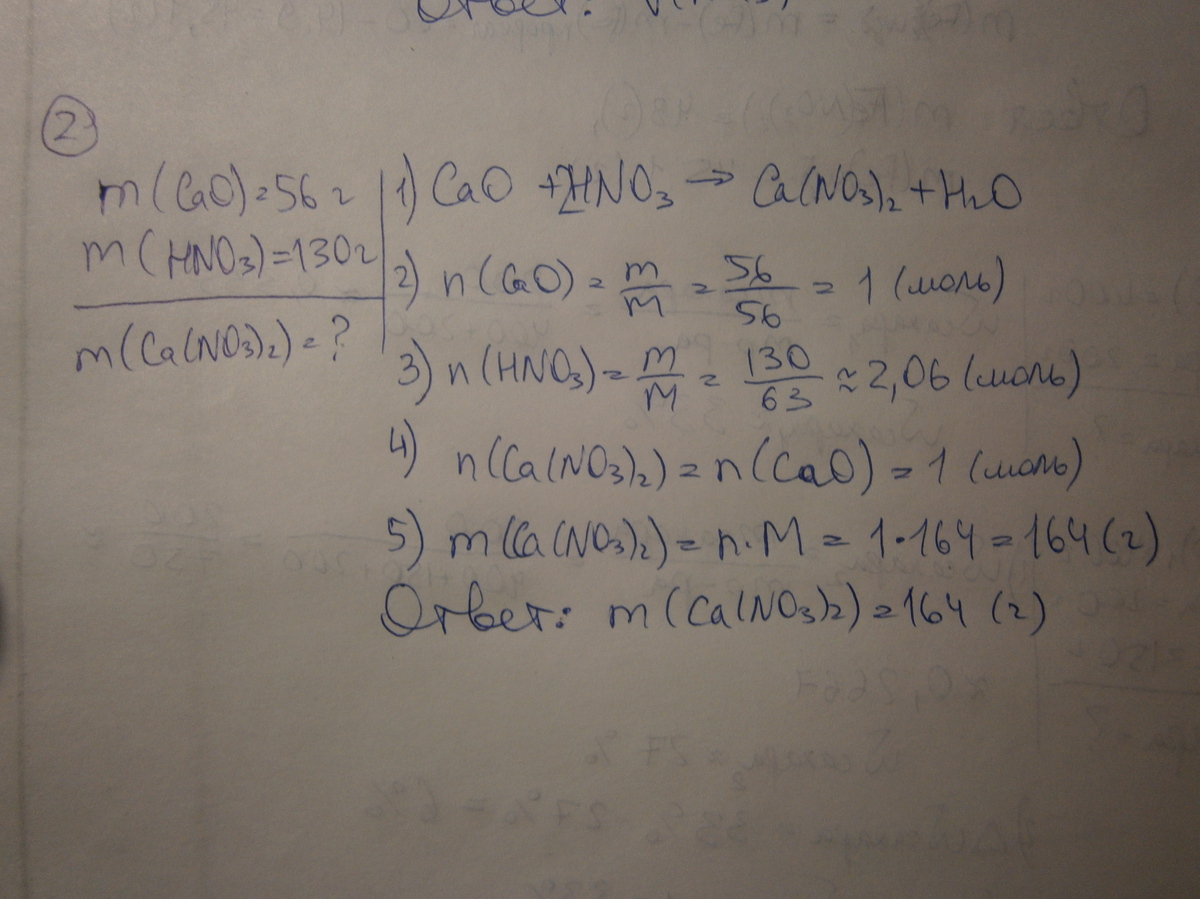 Ответ:
2
m(CaO)=56г
m(HNO₃)=130г
m(Ca(NO₃)₂)=?
1) CaO +2HNO₃ → Ca(NO₃)₂ + H₂O
2) n(CaO) = m/M = 56/56 = 1 (моль)
3) n(HNO₃) = m/M = 130/63 ≈ 2,06 (моль)
4) n(Ca(NO₃)₂) = n(CaO) = 1 (моль)
5) m(Ca(NO₃)₂) = n·M = 1·164 = 164 (г)
Ответ: m(Ca(NO₃)₂) = 164 (г)